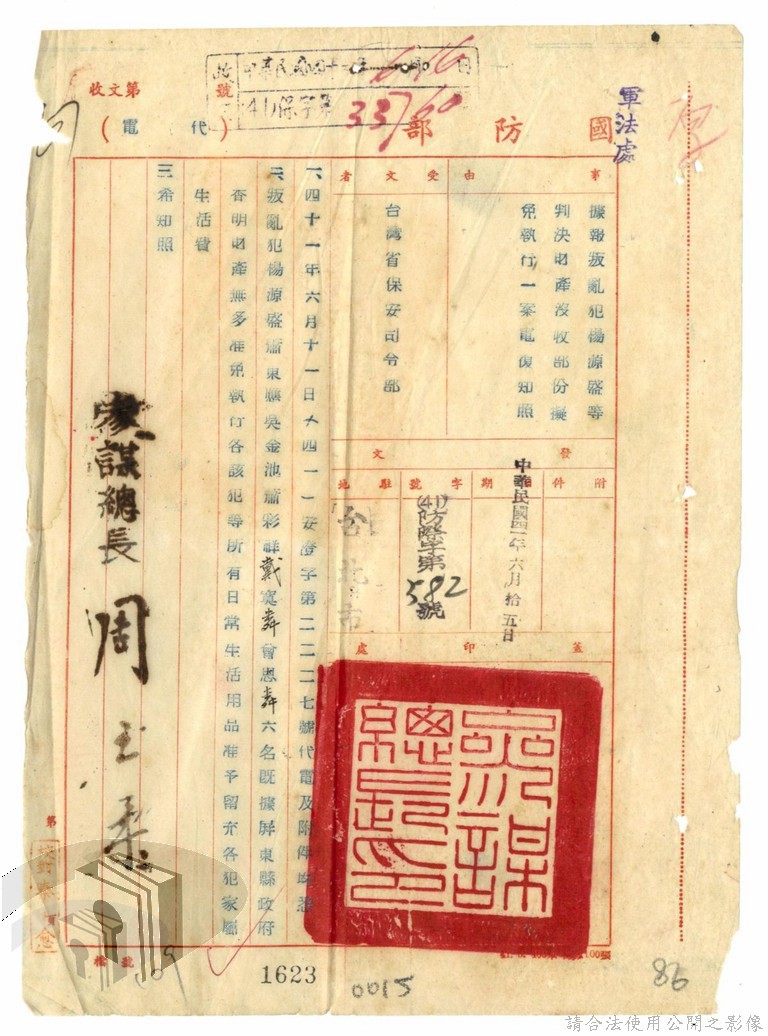 軍法處
國防部
(代電)
收文第 號
41)保字第
33760
事由
據報叛亂犯楊源盛等
判決財產沒收部份擬
免執行一案電復知照
受文者
台灣省保安司令部
發文
附件
日期
中華民國四一年六月拾五日
字號
(41)防隆字第582號
駐地
台北市
蓋印處
一、四十一年六月十一日(四一)安澄字第二二二七號代電及附件均悉
二、叛亂犯楊源盛蕭東驥吳金池蕭彩祥戴寞麟曾恩麟六名既據屏東縣政府
查明財產無多准免執行各該犯等所有日常生活用品准予留充各犯家屬
生活費
三希知照
參謀總長 周至柔
第
號檔
1623
0015
86
請合法使用公開之影像